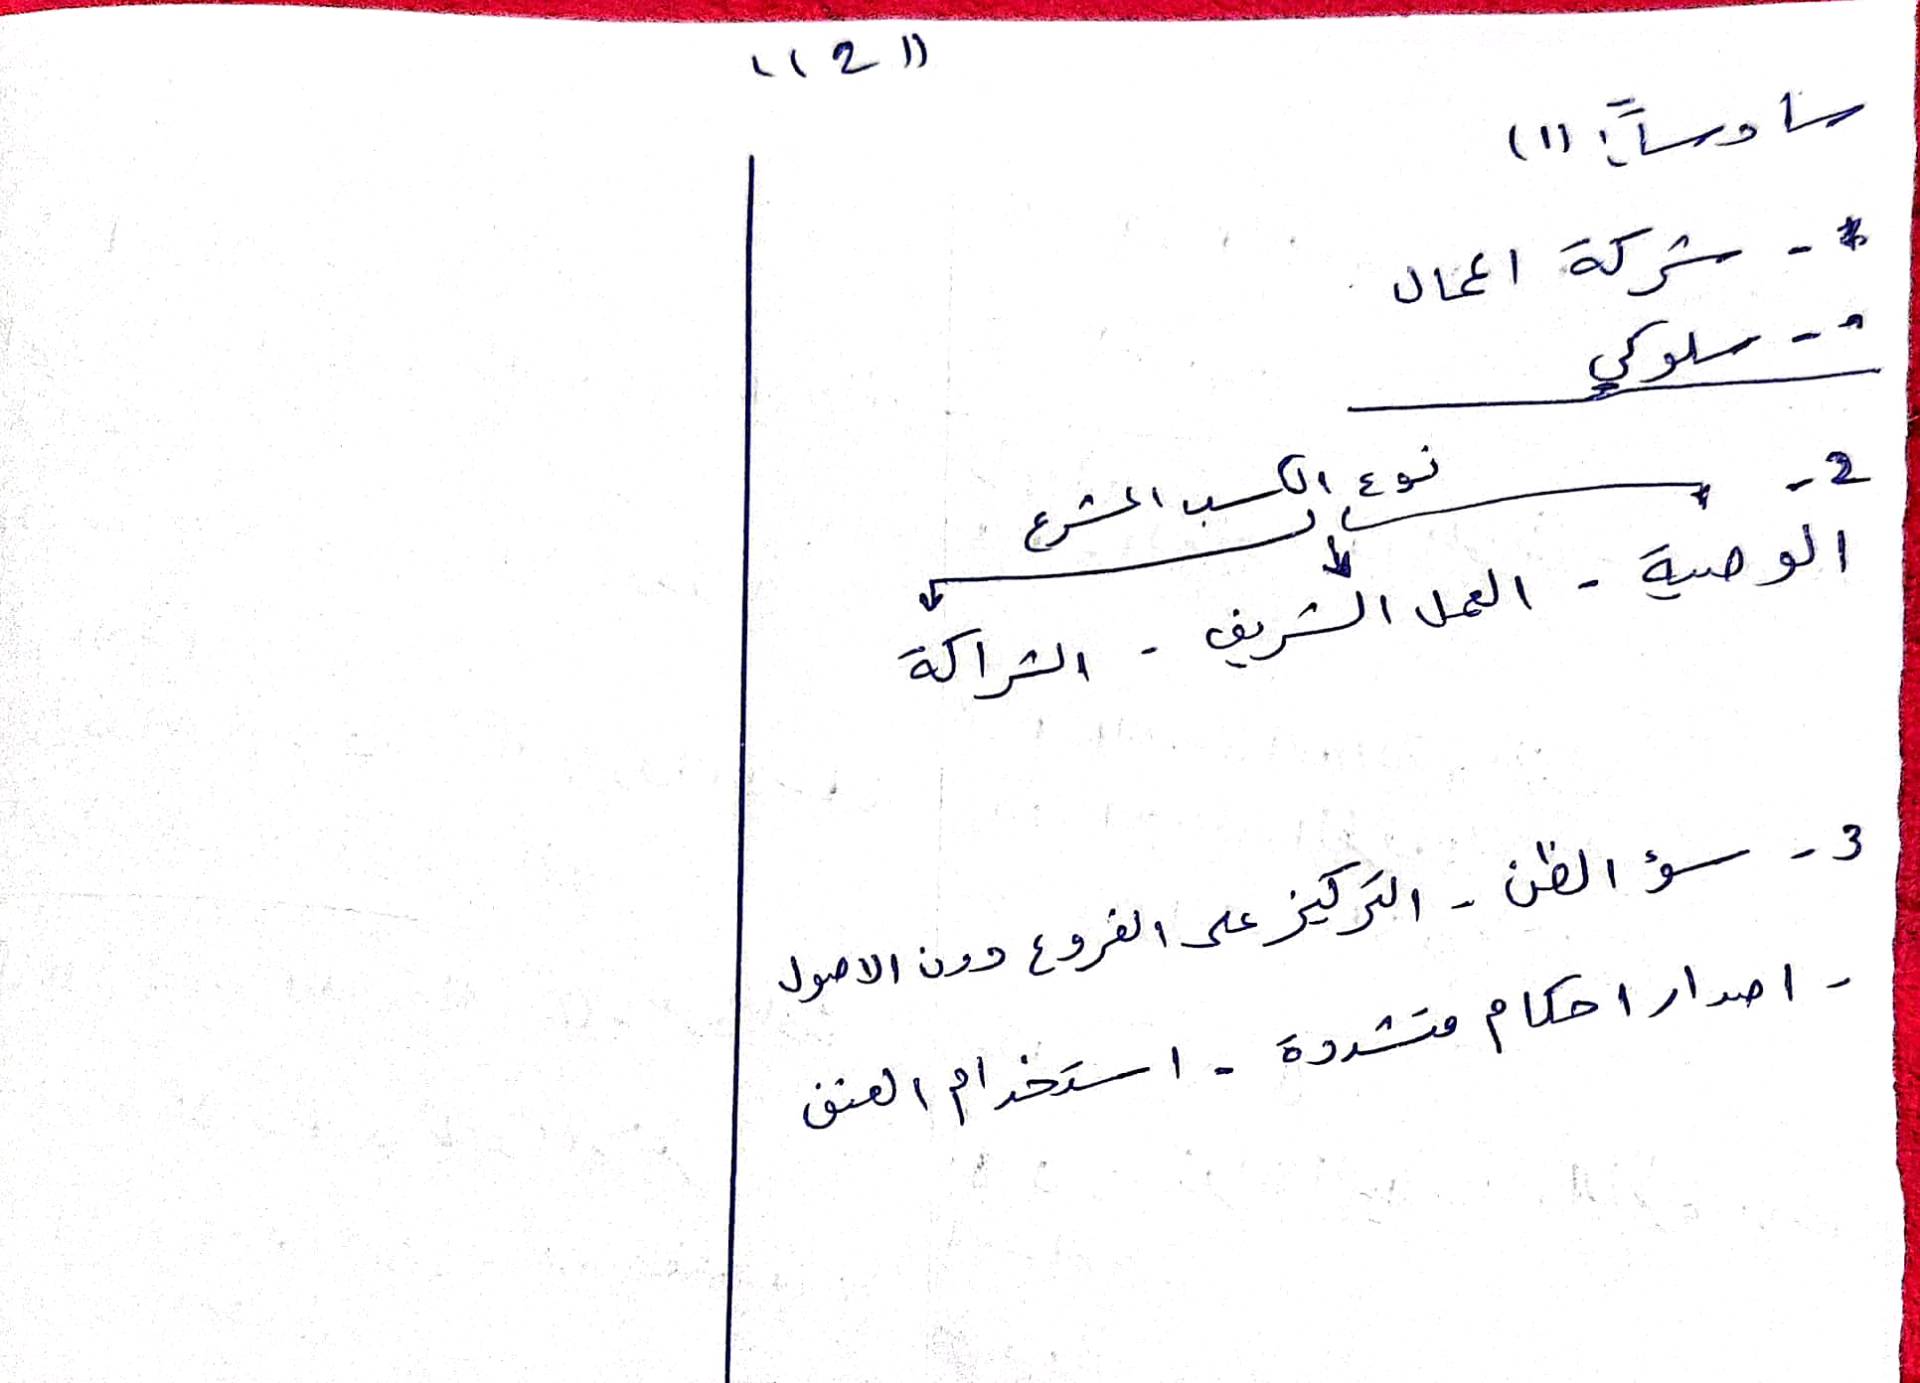 ((2))
سادساً: (1)
* - شركة اعمال
* - سلوكي
2 - نوع الكسب المشرع
الوصية - العمل الشريف - الشراكة
3 - سؤ الظن - التركيز على الفروع دون الاصول
- اصدار احكام متشددة - استخدام العنف